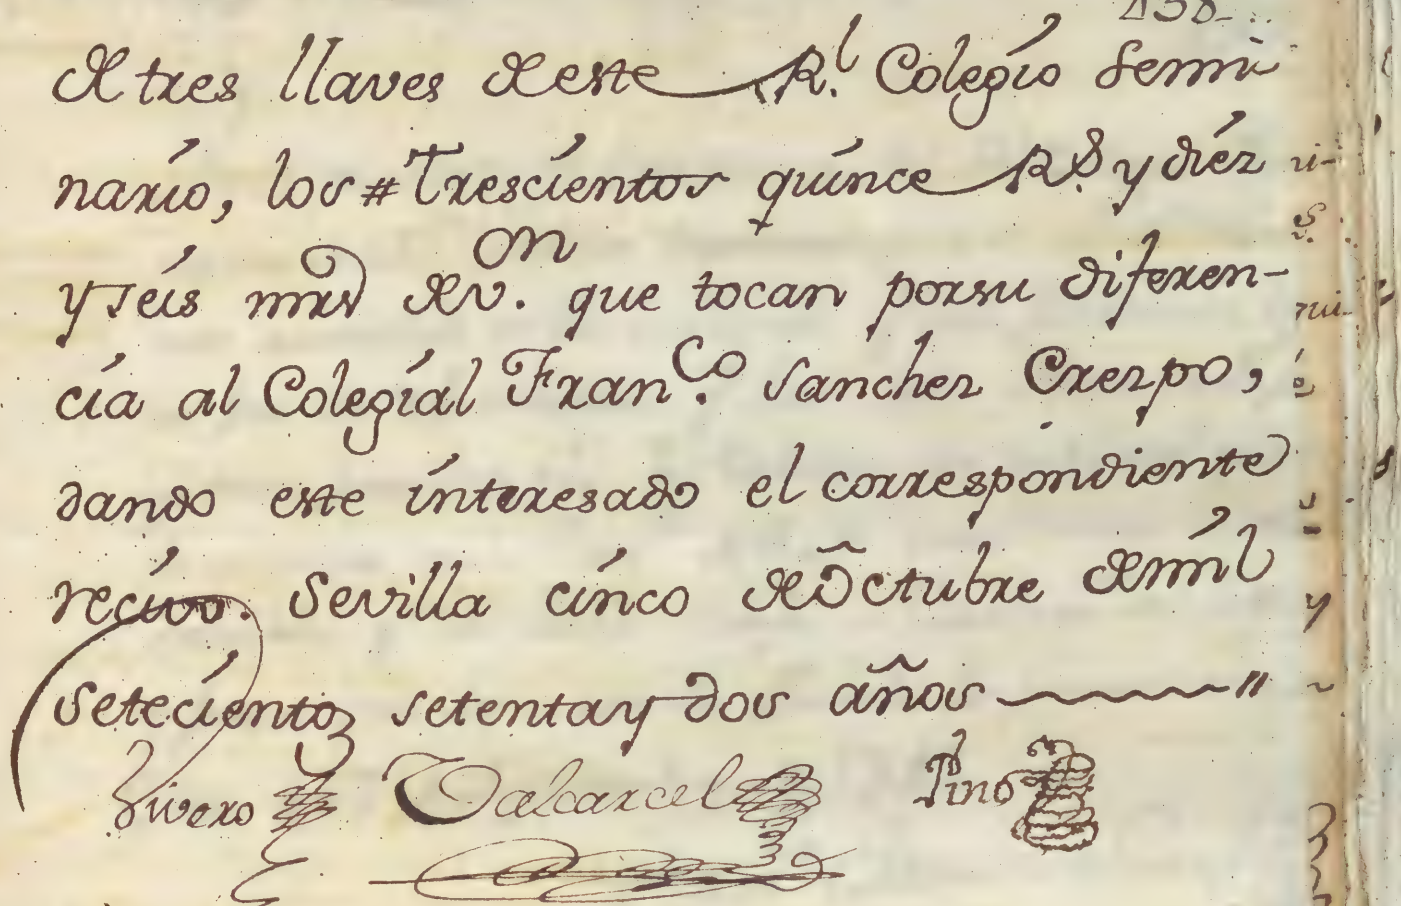 de tres llaves de este Rl. Colegio Semi
nario, los #Trescientos quince Rs. y diez
y seis mrs de von. que tocan por su diferen-
cia al Colegial Franco. Sanchez Crespo,
dando este interesado el correspondiente
recivo. Sevilla cinco de Octubre de mil
setecientos setenta y dos años ———"
Vivero Valcarcel Pino